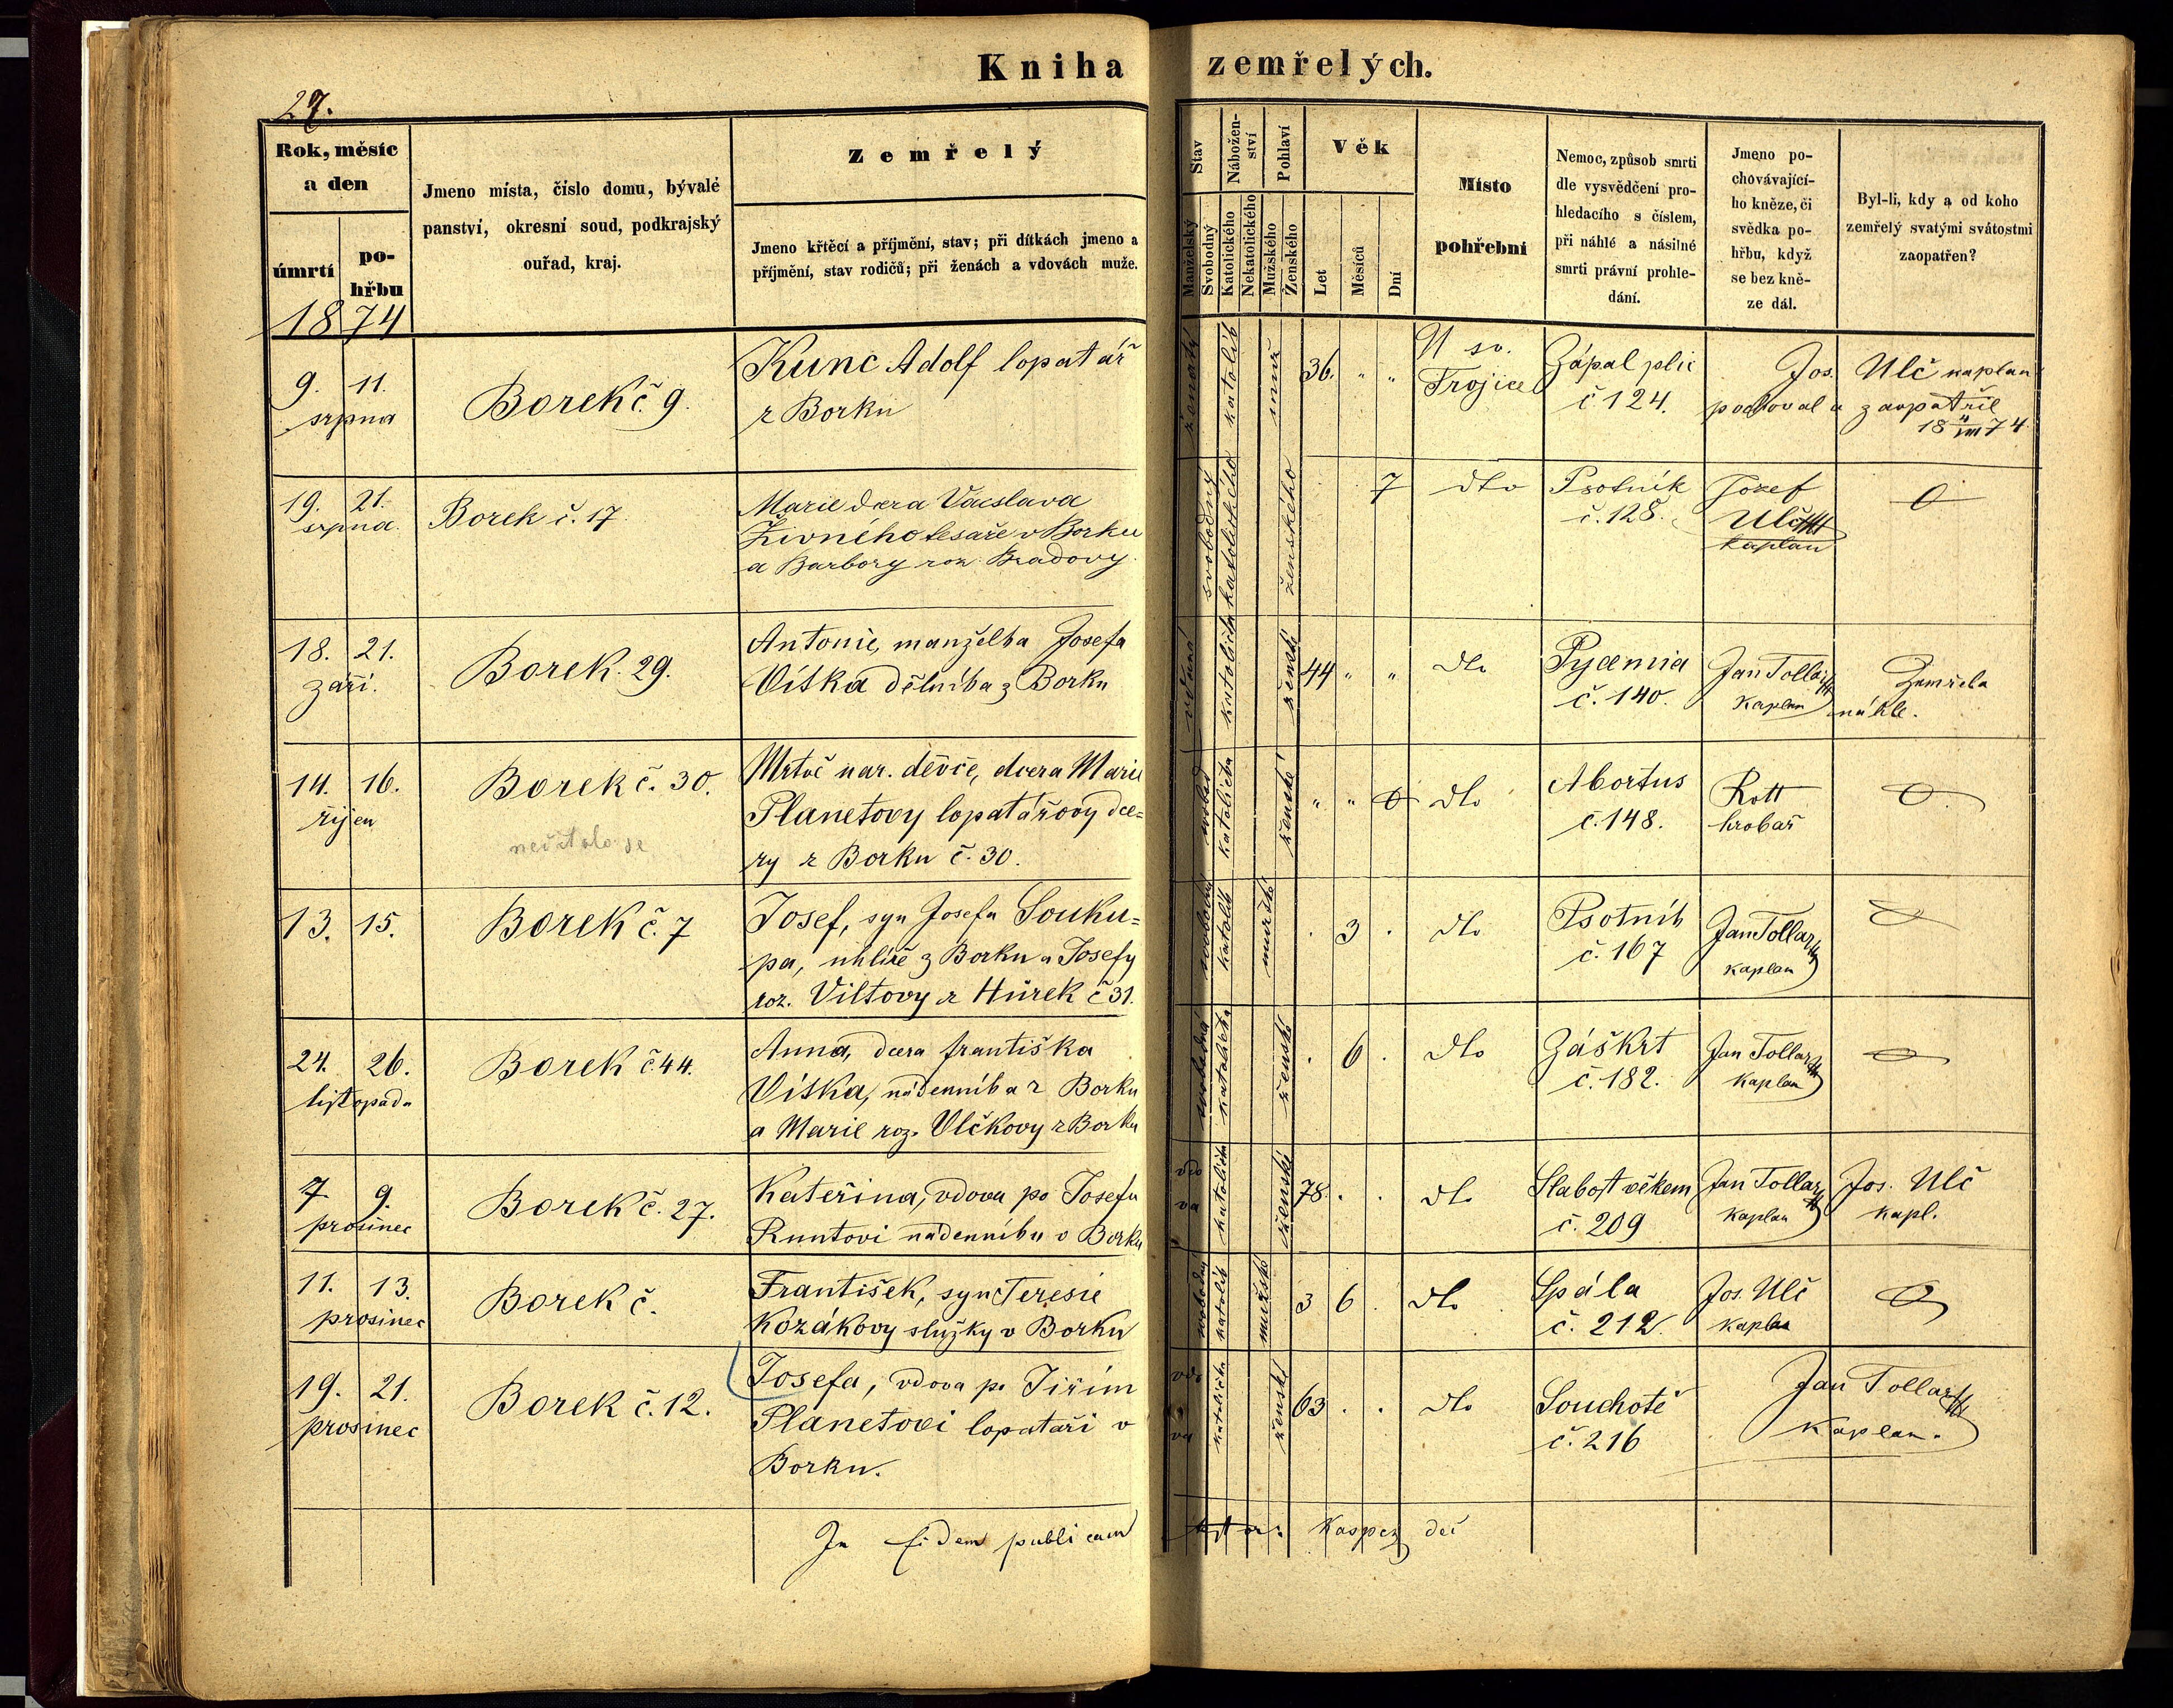 Kniha zemřelých.
27.
Rok, měsíc
a den
úmrtí
po-
hřbu
1874
Jmeno místa, číslo domu, bývalé
panství, okresní soud, podkrajský
ouřad, kraj.
Zemřelý
Jmeno křtěcí a příjmění, stav; při dítkách jmeno a
příjmění, stav rodičů; při ženách a vdovách muže.
Stav
Manželský
Svobodný
Nábožen-
ství
Katolického
Nekatolického
Pohlaví
Mužského
Ženského
Věk
Let
Měsíců
Dní
Místo
pohřební
Nemoc, způsob smrti
dle vysvědčení pro-
hledacího s číslem,
při náhlé a násilné
smrti právní prohle-
dání.
Jmeno po-
chovávající-
ho kněze, či
svědka po-
hřbu, když
se bez kně-
ze dál.
Byl-li, kdy a od koho
zemřelý svatými svátostmi
zaopatřen?
9. 11.
srpna
Borek č. 9.
Kunc Adolf lopatář
z Borku
ženatý
katolík
36. " "
U sv.
Trojice
Zápal plic
č 124.
Jos. Ulč kaplan
pochoval a zaopatřil
18 4/VIII 74
19. 21.
srpna.
Borek č. 17
Marie dcera Václava
Živného tesaře v Borku
a Barbory roz. Bradovy
svobodný
katolického
ženského
7
dto
Psotník
č. 128.
Jozef
Ulč
kaplan
O
18. 21.
září.
Borek. 29.
Antonie, manželka Josefa
Vítka dělníka z Borku
katolička
ženské
44 " "
dto
Pyaemia
č. 140.
Jan Tollar
kaplan
Zemřela
náhle.
14. 16.
říjen
Borek č. 30.
nečítalo se
Mrtvě nar. děvče, dcera Marie
Planetovy lopatářovy dce-
ry z Borku č. 30.
katolička
ženské
" " O
dto
Abortus
č. 148.
Rott
hrobař
O
13. 15.
Borek č. 7
Josef, syn Josefa Souku-
pa, uhlíře z Borku a Josefy
roz. Viltovy z Hůrek č 31.
svobodný
katolík
mužské
. 3 .
dto
Psotník
č. 167
Jan Tollar
kaplan
O
24. 26.
listopadu
Borek č. 44.
Anna, dcera františka
Vítka, nádenníka z Borku
a Marie roz. Vlčkovy z Borku
svobodná
katolička
ženské
. 6 .
dto
Záškrt
č. 182.
Jan Tollar
kaplan
O
7. 9.
prosinec
Borek č. 27.
Kateřina, vdova po Josefu
Runtovi nádenníku v Borku
vdo
va
katolička
ženské
78. . .
dto
Slabost věkem
č. 209
Jan Tollar
kaplan
Jos. Ulč
kapl.
11. 13.
prosinec
Borek č.
František, syn Teresie
Kozákovy služky v Borku
svobodný
katolík
mužské
3 6 .
dto
Spála
č. 212.
Jos. Ulč
kaplan
O
19. 21.
prosinec
Borek č. 12.
Josefa, vdova po Jiřím
Planetovi lopataři v
Borku.
vdo
va
katolička
ženské
63 . .
dto
Souchotě
č. 216
Jan Tollar
Kaplan.
In fidem publicam